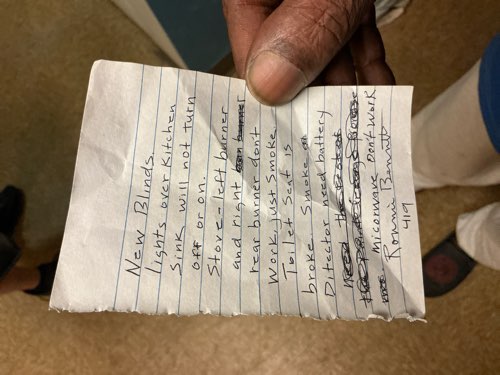 New Blinds,
lights over Kitchen
Sink will not turn
off or on.
Stove - left burner
and right
rear burner don't
Work, just Smoke
Toilet Seat is
broke Smoke
Ditector need battery
micorwave Don't Work
Ronnie Bennett
419